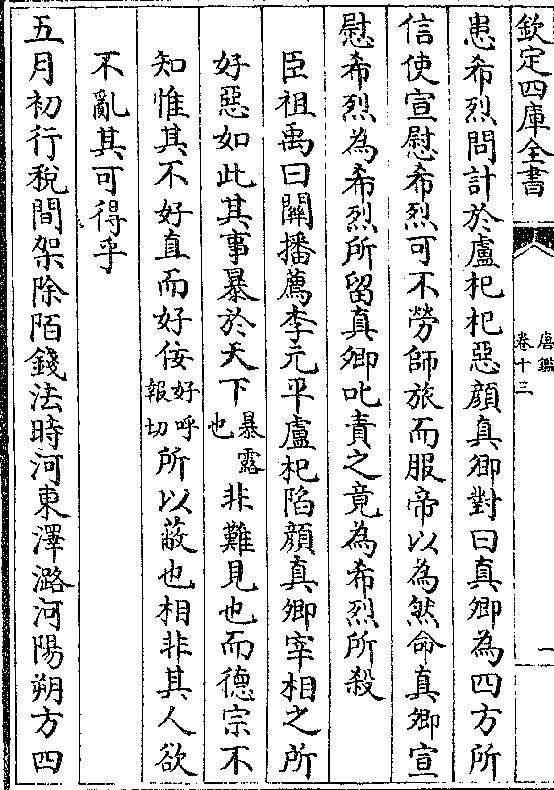 欽定四庫全書
唐鑑
卷十三
一
患希烈問計於盧杞杞惡顔真卿對曰真卿為四方所
信使宣慰希烈可不勞師旅而服帝以為然命真卿宣
慰希烈為希烈所留真卿叱責之竟為希烈所殺
臣祖禹曰關播薦李元平盧杞陷顔真卿宰相之所
好惡如此其事暴於天下暴露也非難見也而德宗不
知惟其不好直而好佞好呼報切所以蔽也相非其人欲
不亂其可得乎
五月初行稅間架除陌錢法時河東澤潞河陽朔方四